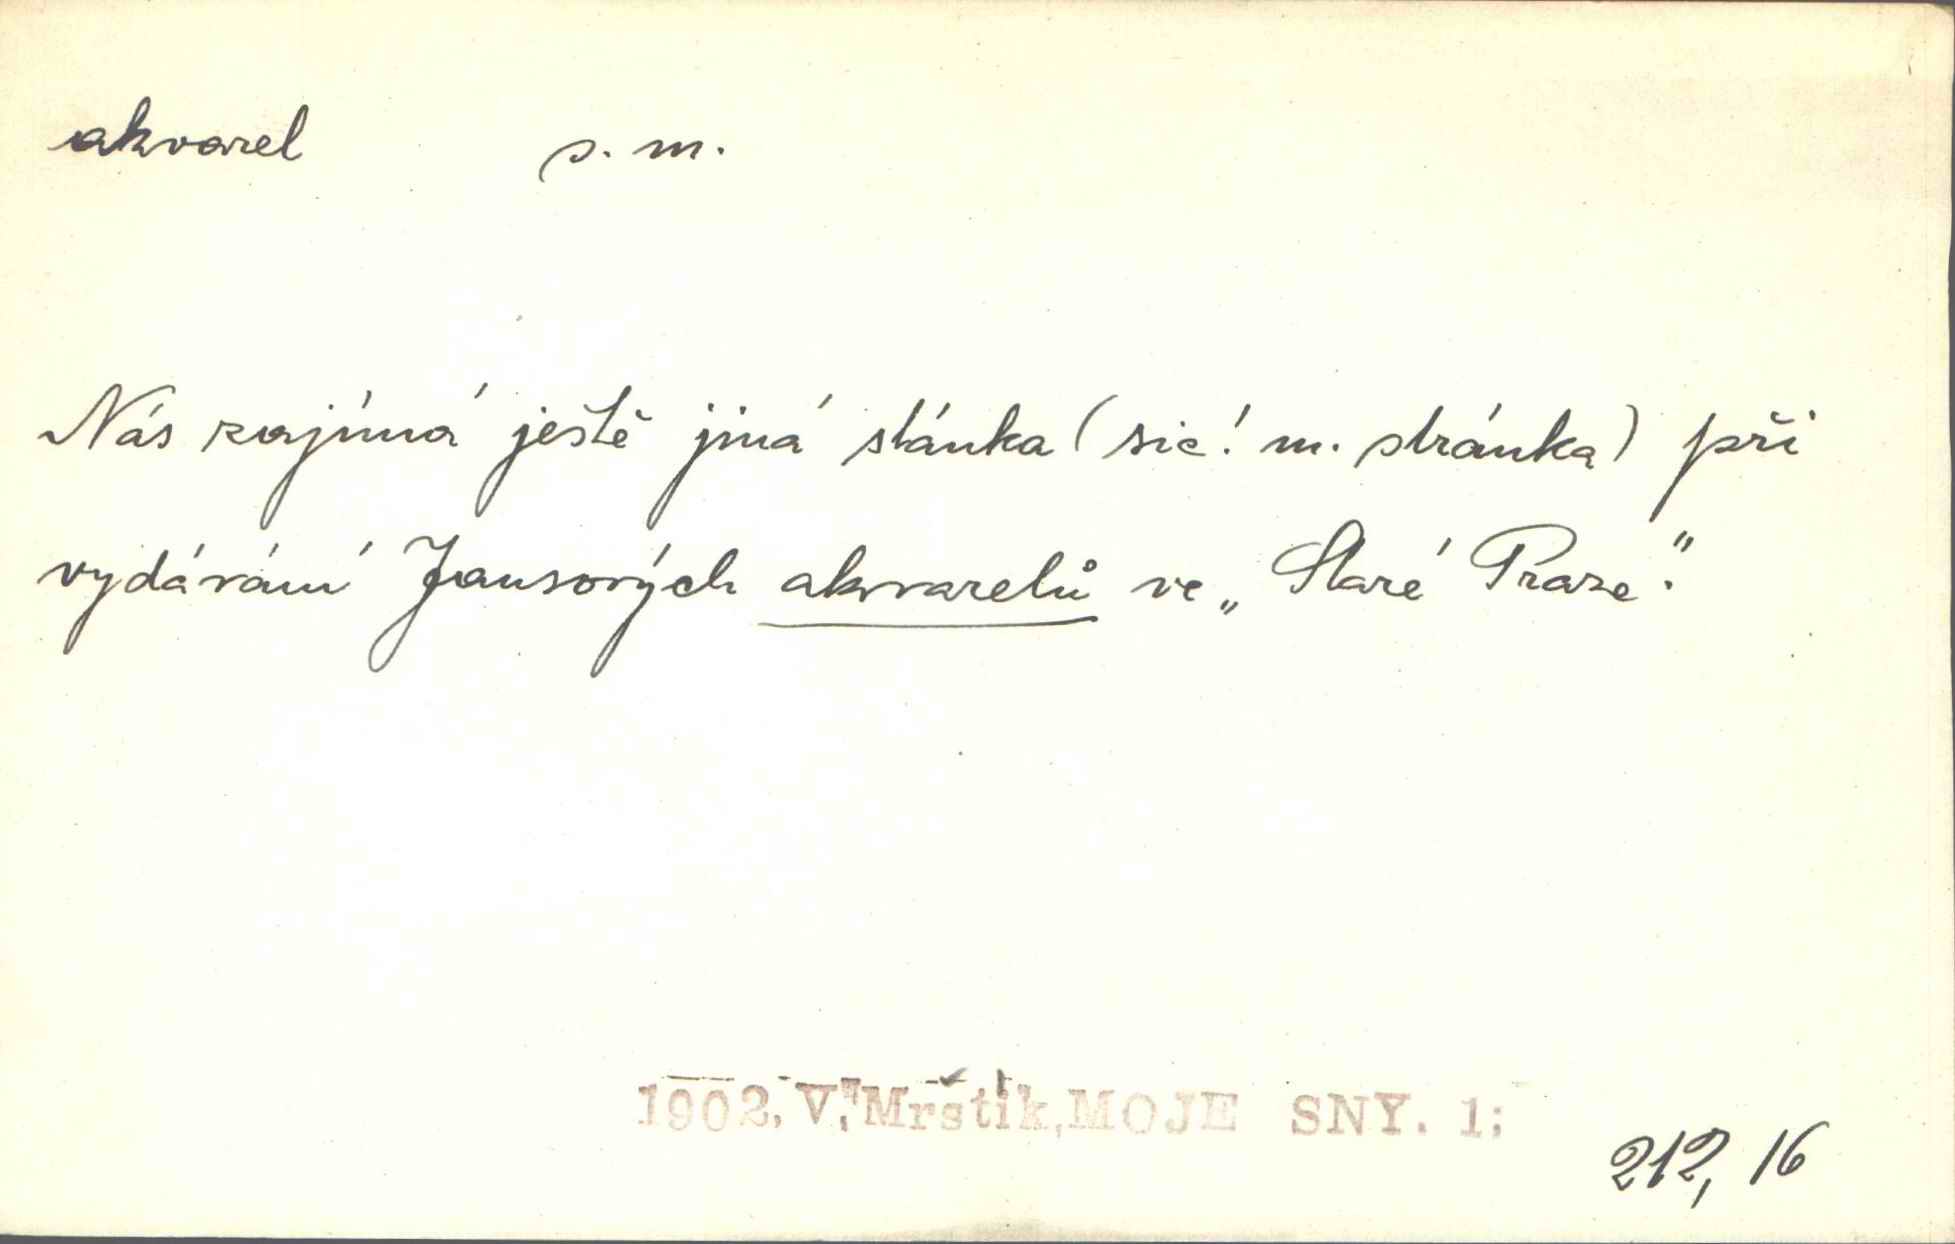 akvarel s. m.
Nás zajímá ještě jiná stánka (sic! m. stránka) při
vydávání Jansových akvarelů ve „Staré Praze“.
1902. V. Mrštík, MOJE SNY. 1;
212, 16